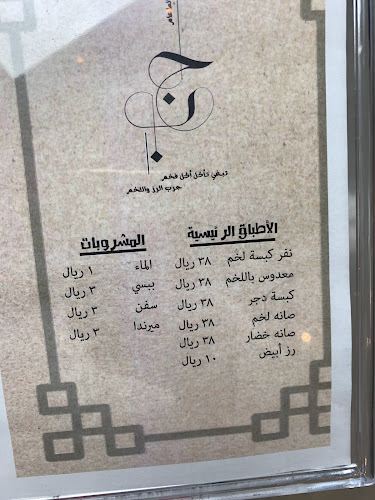 تبغي تأكل أكل فخم
جرب الرز واللخم
الأطباق الرئيسية
نفر كبسة لخم ٣٨ ريال
معدوس باللخم ٣٨ ريال
كبسة دجر ٣٨ ريال
صانه لخم ٣٨ ريال
صانه خضار ٣٨ ريال
رز أبيض ١٠ ريال
المشروبات
الماء ١ ريال
بيبسي ٣ ريال
سفن ٣ ريال
ميرندا ٣ ريال